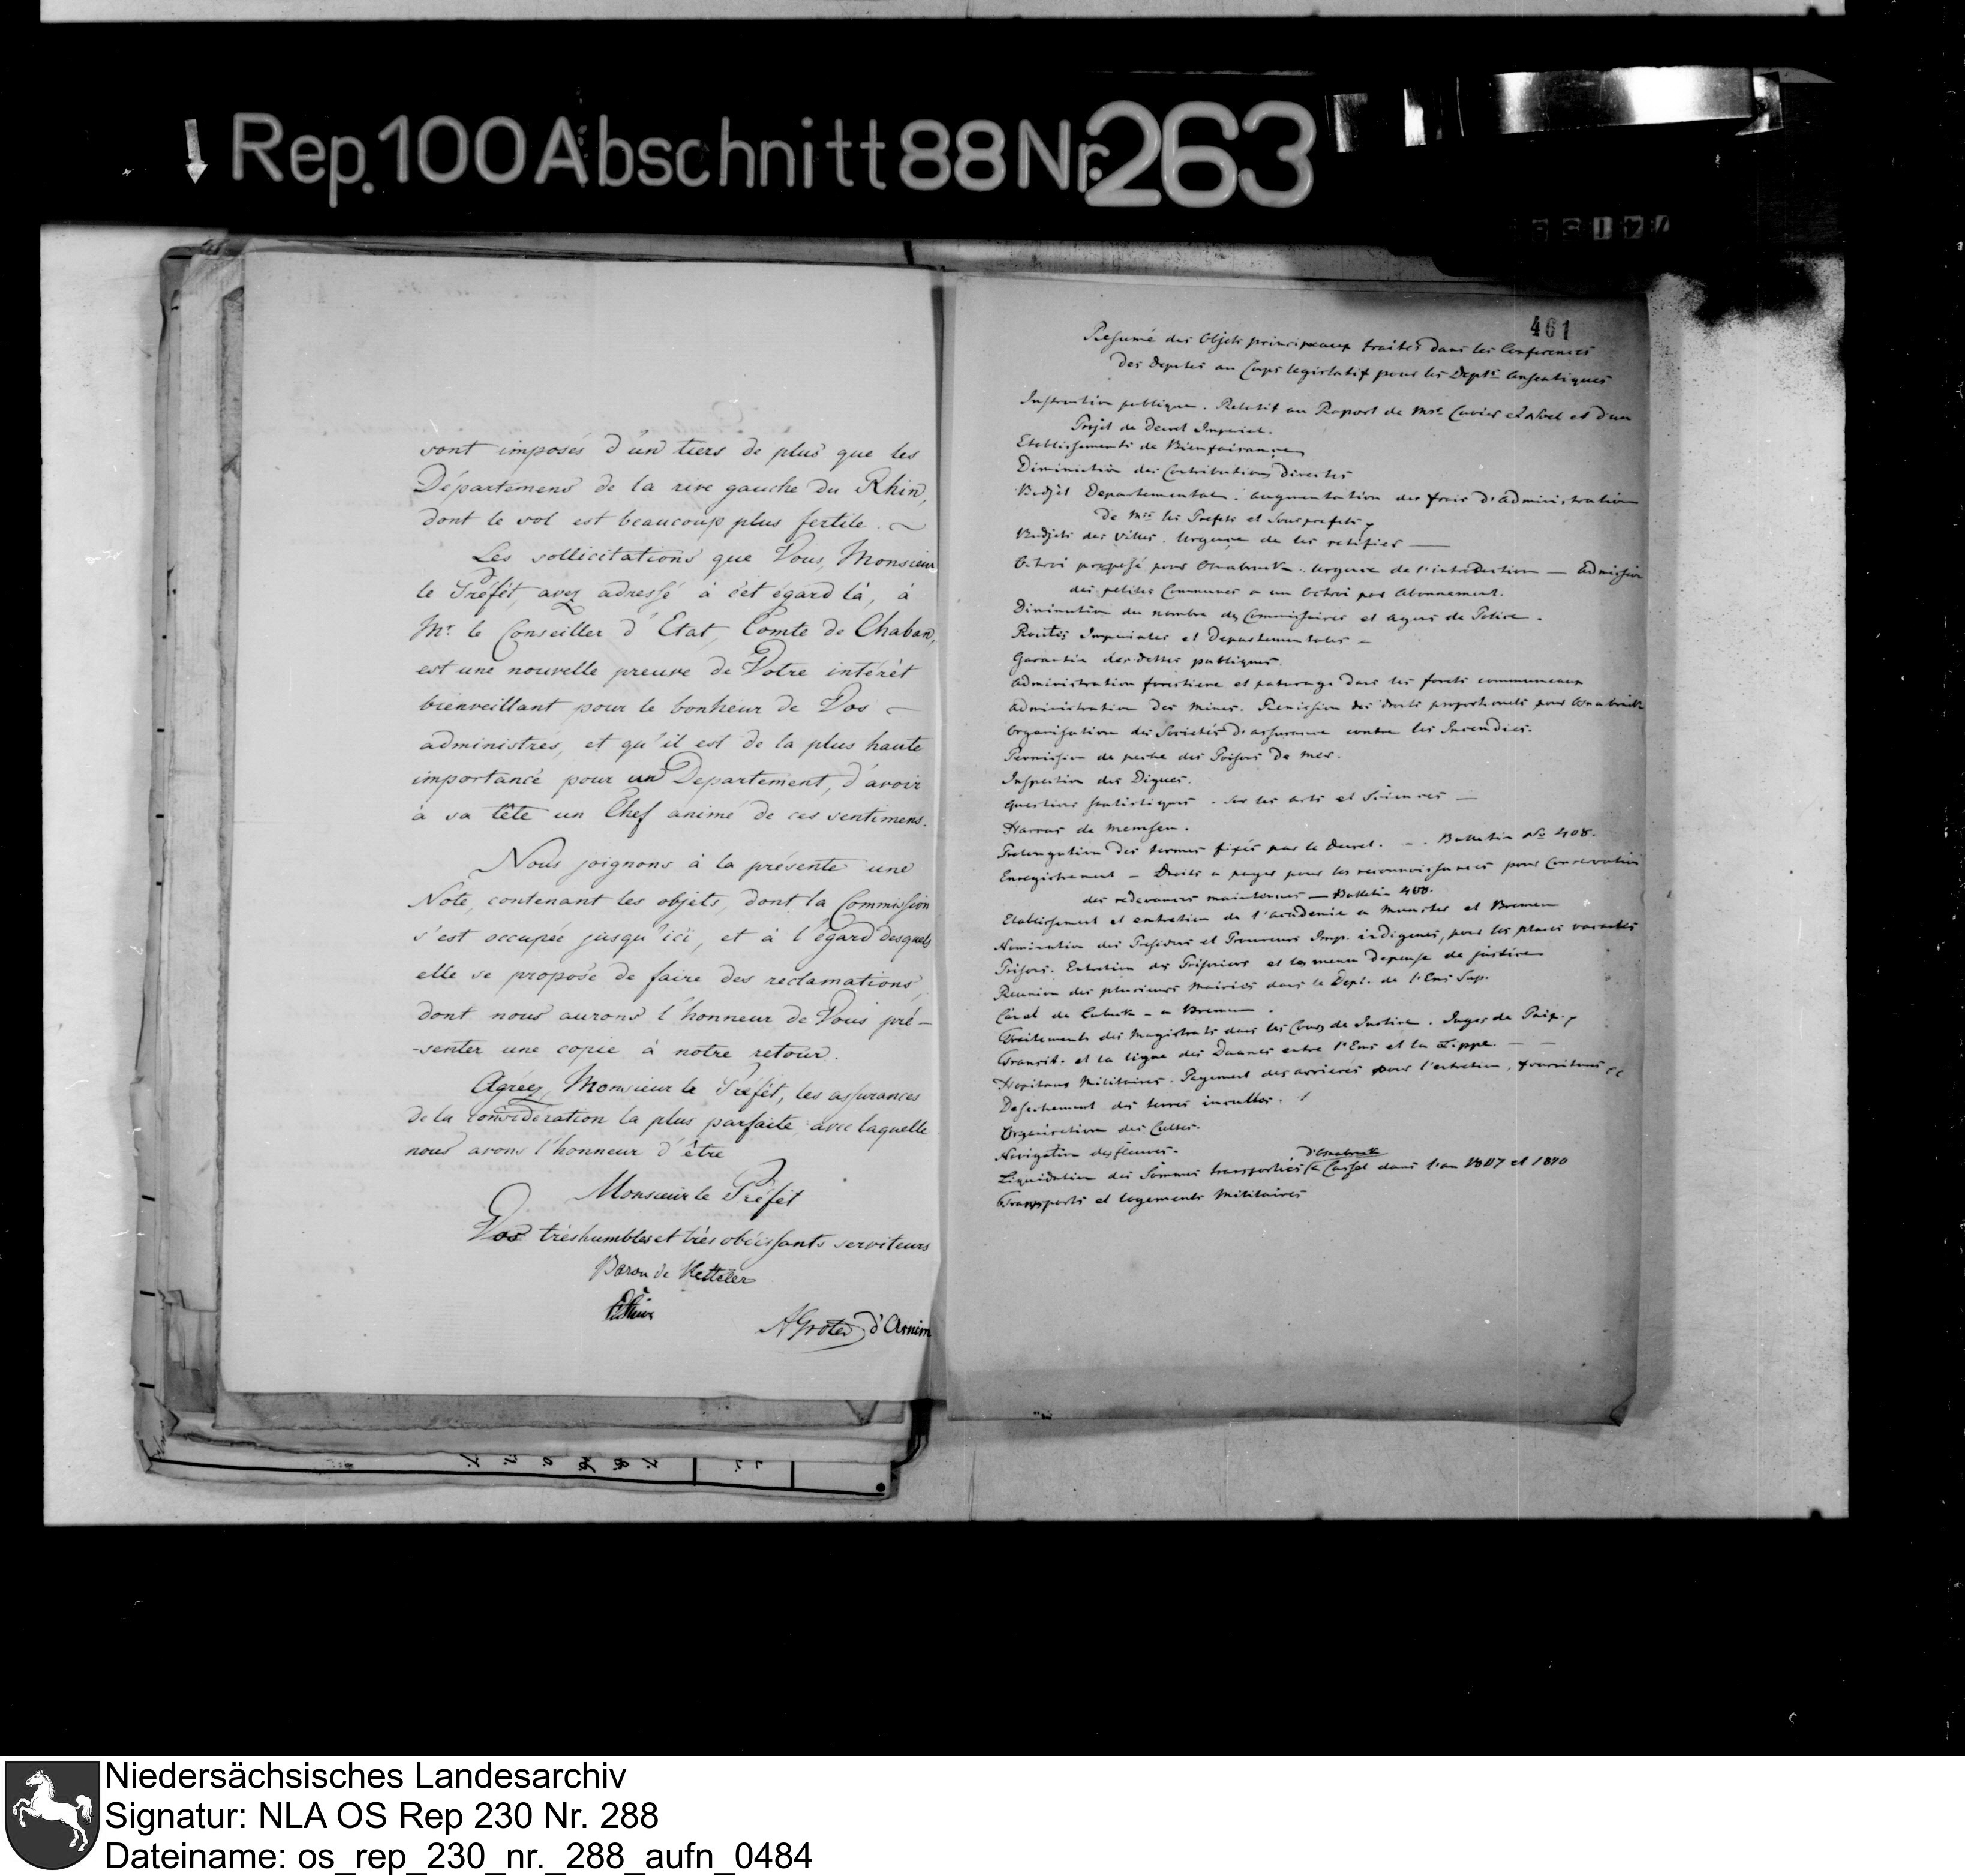 Rep. 100 Abschnitt 88 Nr. 263
sont imposés d'un tiers de plus que les
Départemens de la rive gauche du Rhin,
dont le sol est beaucoup plus fertile.
Les sollicitations que Vous, Monsieur
le Préfét, avez adressé à cét égard là, à
Mr. le Conseiller d'Etat, Comte de Chaban,
est une nouvelle preuve de Votre intérêt
bienveillant pour le bonheur de Vos
administrés, et qu'il est de la plus haute
importance pour un Departement, d'avoir
à sa tête un Chef animé de ces sentimens.
Nous joignons à la présente une
Note, contenant les objets, dont la Commission
s'est occupée jusqu'ici, et à l'égard desquels
elle se propose de faire des reclamations,
dont nous aurons l'honneur de Vous pré-
-senter une copie à notre retour.
Agréez, Monsieur le Préfét, les assurances
de la consideration la plus parfaite avec laquelle
nous avons l'honneur d'être
Monsieur le Préfét
Vos trèshumbles et très obéissants serviteurs
Baron de Ketteler
AGrote d'Arnim
461
Resumé des Objets principeaux traités dans les Conferences
des deputés au Corps legislatif pour les Depts. Anseatiques
Instruction publique. Relatif au Raport de Mrs. Cuvier et Noel et d'un
Projet de Decret Imperial.
Etablissements de Bienfaisance
Diminution des Contributions directes
Budjet Departemental. augmentation des frais d'administration
de Mrs. les Prefets et Sousprefets
Budjets des Villes. Urgence de les retifier —
Octroi proposé pour Osnabruck. Urgence de l'introduction — Admission
des petites Communes a un Octroi par Abonnement.
Diminution du nombre des Commissaires et agens de Police.
Routes Imperiales et Departementales —
Garantie des dettes publiques.
Administration forestiere et paturage dans les forets communeaux
Administration des Mines. Remission des droits proportionels pour Osnabruck
Organisation des Societés d'assurance contre les Incendies.
Permission de peche des Poisons de mer.
Inspection des Digues.
Questions statistiques. Sur les arts et Sciences —
Harras de Memsen.
Prolongation des termes fixés par le Decret. — Bulletin No. 408.
Enregistrement — Droits a payer pour les reconnoissances pour Conservation
des redevances maintenues — Bulletin 408.
Etablissement et entretien de l'academie a Munster et Bremen
Nomination des Presidens et Procureurs Imp. indigenes, pour les places vacantes
Prisons. Entretien des Prisoniers et les menu depense de justice
Reunion des plusieurs Mairies dans le Dept. de l'Ems Sup.
Canal de Lubeck — a Bremen.
Traitements des Magistrats dans les Cours de Justice. Juges de Paix.
Transit. et la ligne des Douanes entre l'Ems et la Lippe — —
Hopitaux Militaires. Payement des arrieres pour l'entretien, fournitures
Desechement des terres incultes.
Organisation des Cultes.
Navigation des fleuves.
d'Osnabruck
Liquidation des Sommes transportés a Cassel dans l'an 1807 et 1810
Transports et logements Militaires
Niedersächsisches Landesarchiv
Signatur: NLA OS Rep 230 Nr. 288
Dateiname: os_rep_230_nr._288_aufn_0484